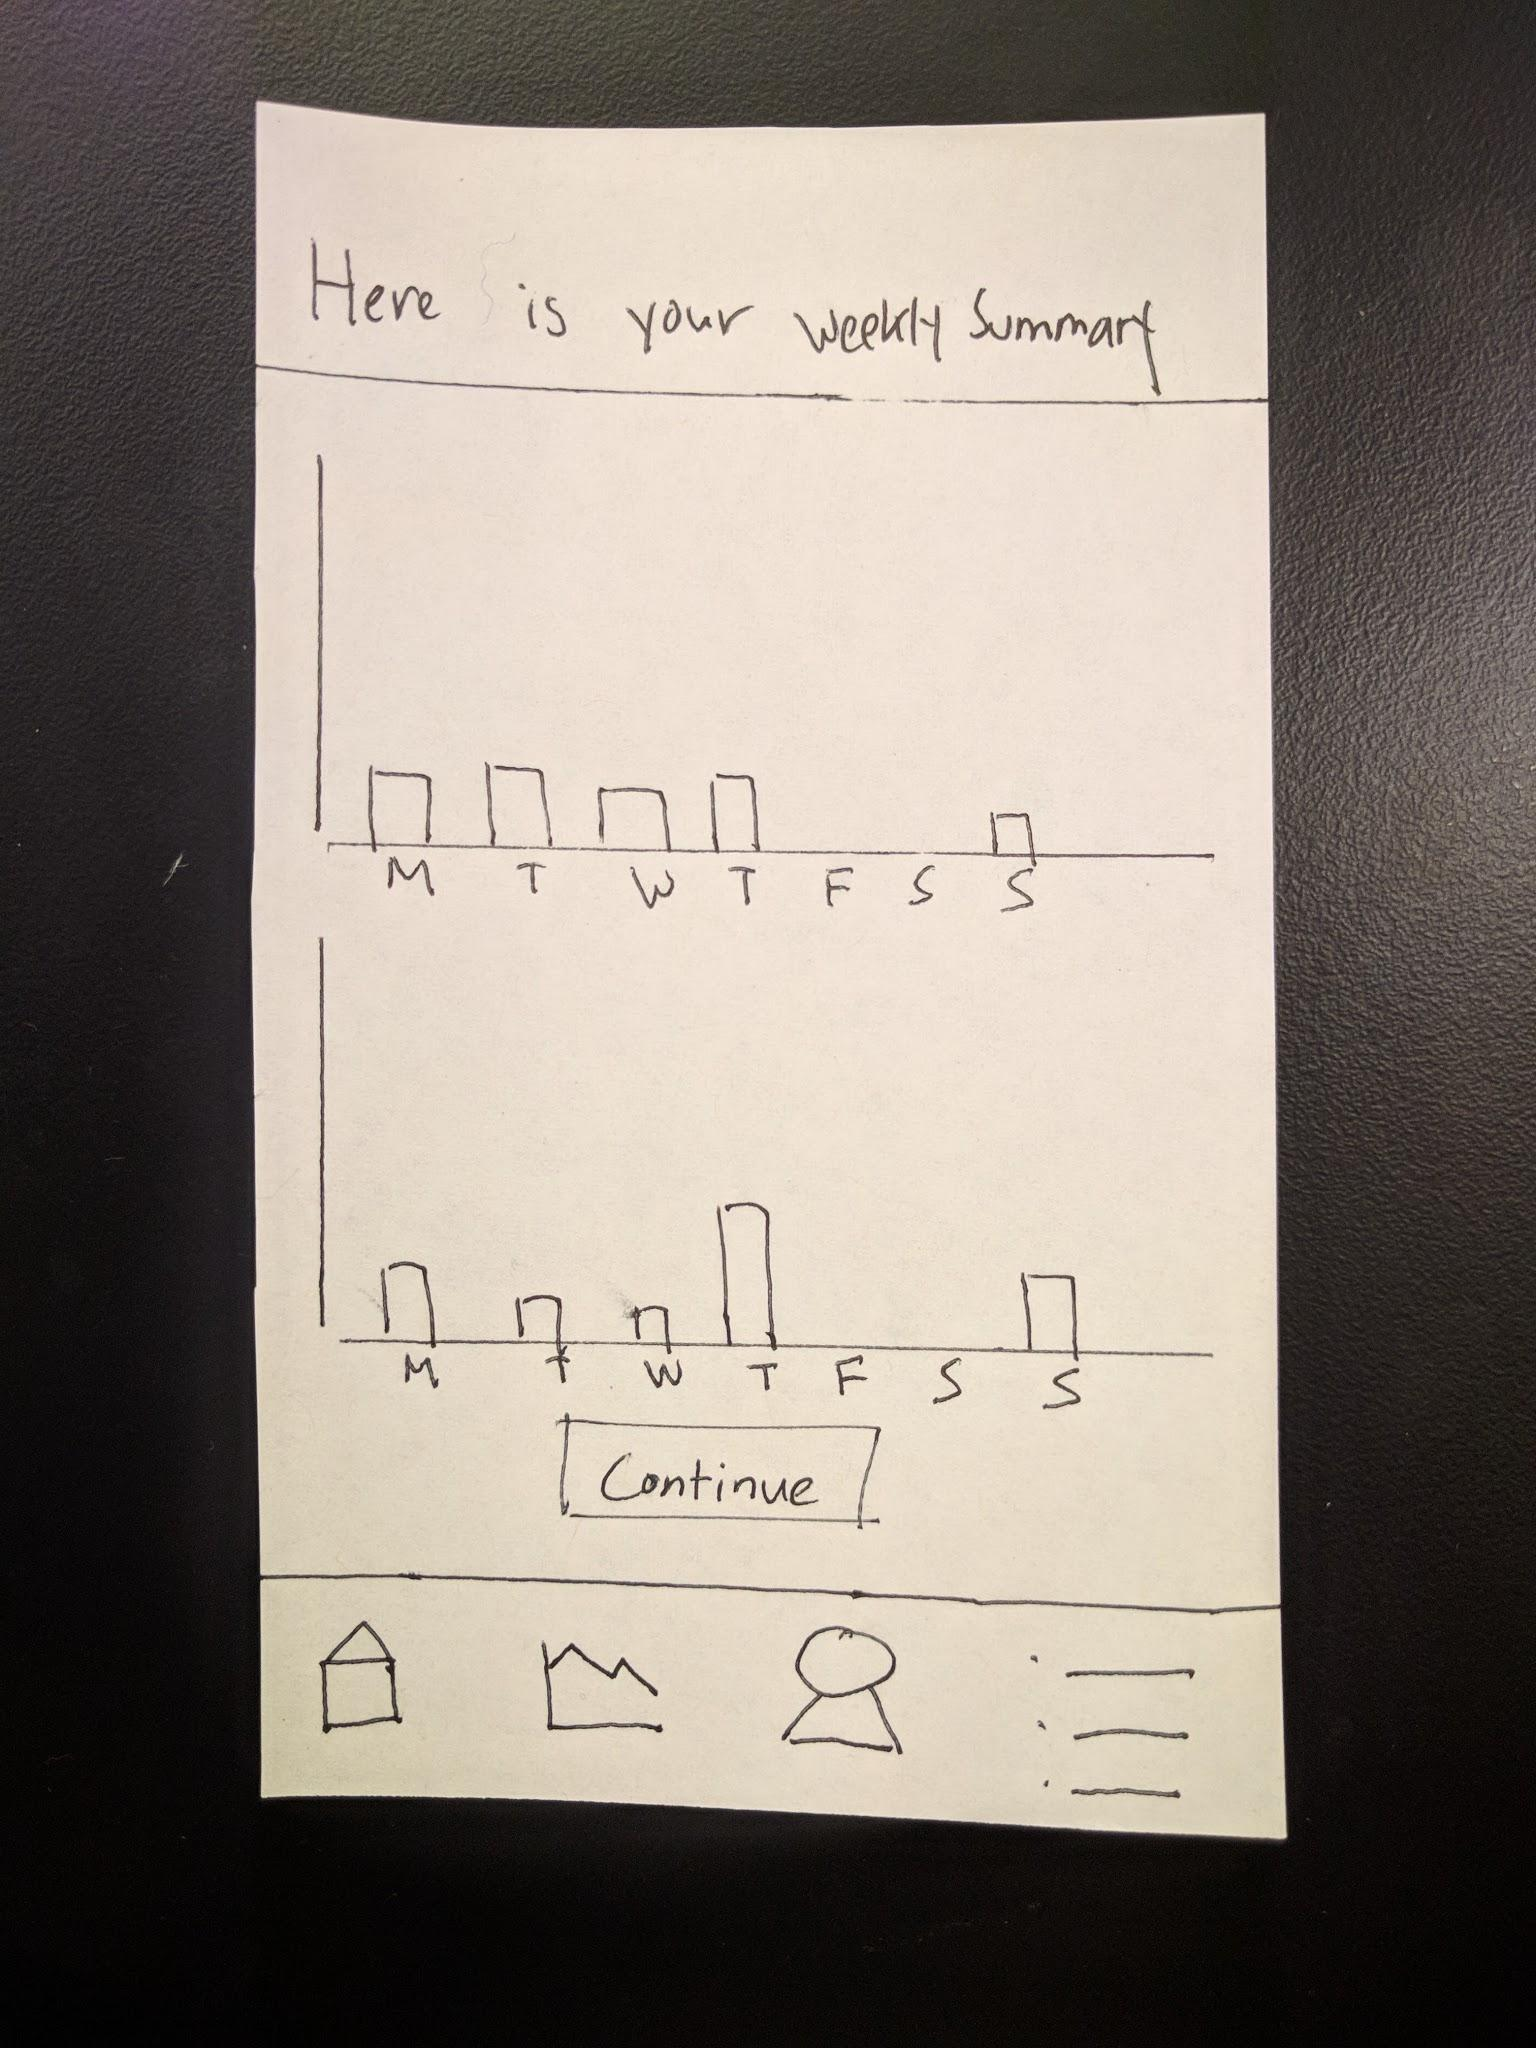 Here is your weekly Summary
M T W T F S S
M T W T F S S
Continue